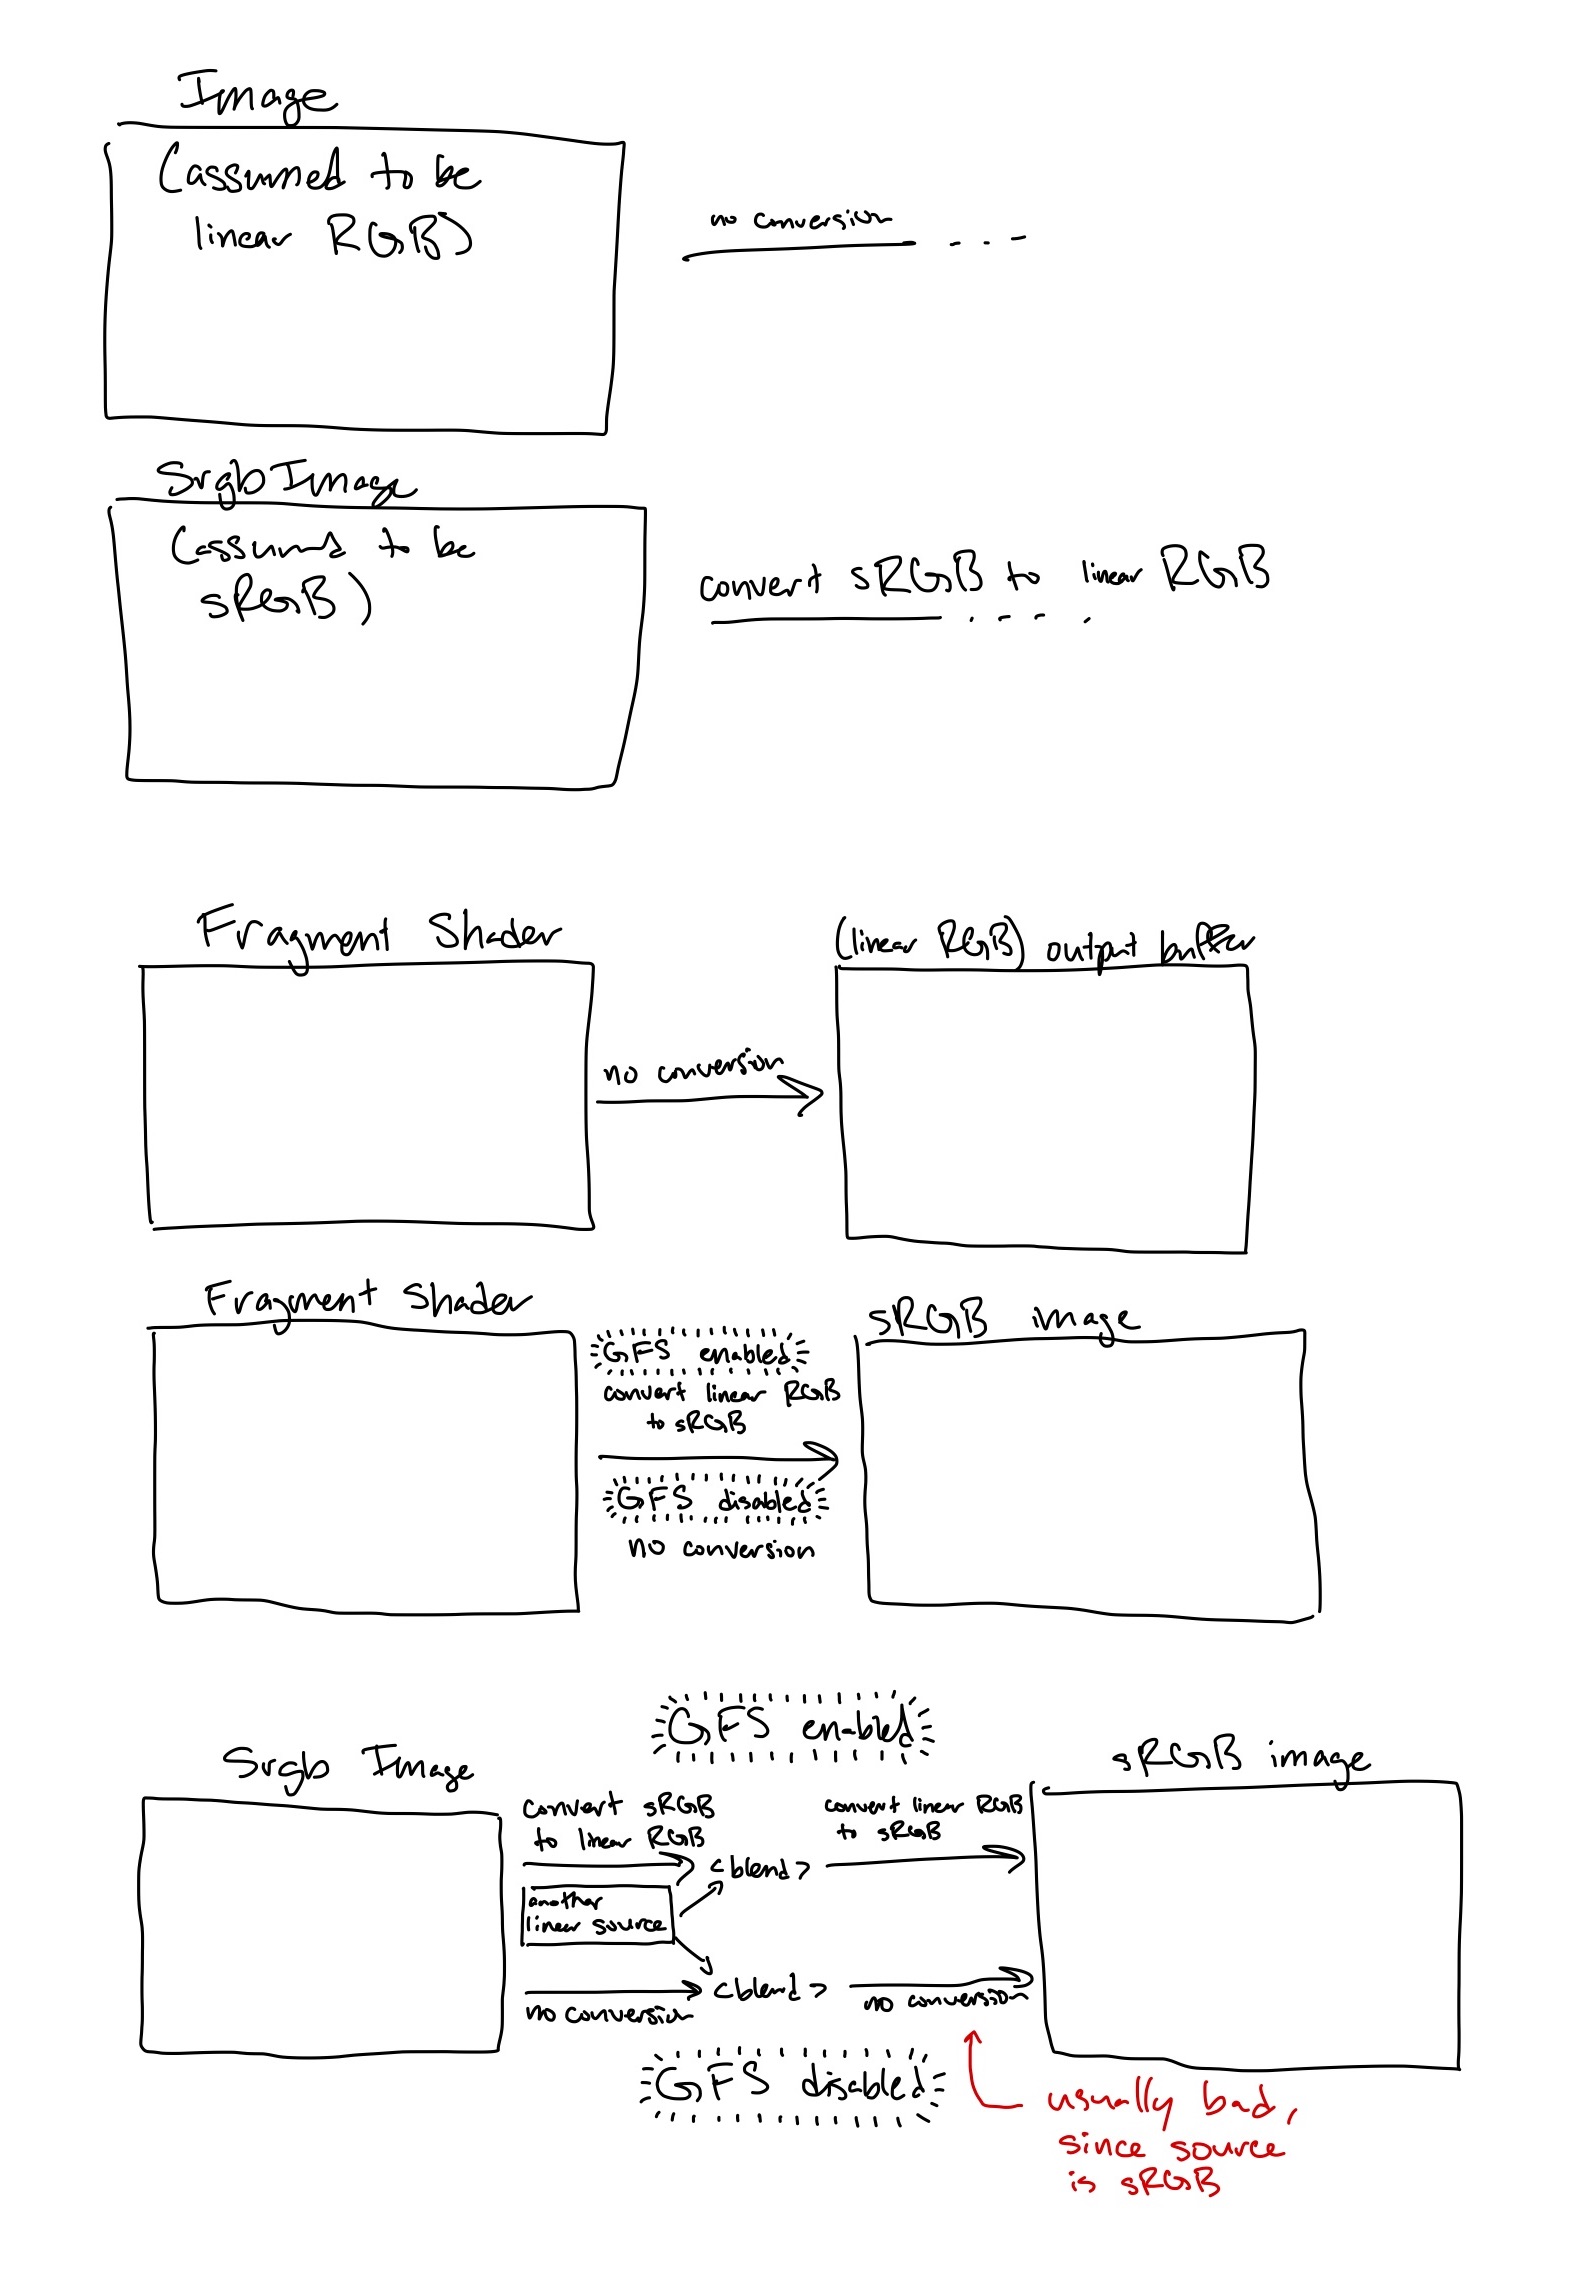 Image
(assumed to be
linear RGB)
no conversion
Srgb Image
(assumed to be
sRGB)
convert sRGB to linear RGB
Fragment Shader
(linear RGB) output buffer
no conversion
Fragment Shader
sRGB image
GFS enabled
convert linear RGB
to sRGB
GFS disabled
no conversion
GFS enabled
Srgb Image
sRGB image
convert sRGB
to linear RGB
convert linear RGB
to sRGB
<blend>
another
linear source
<blend>
no conversion
no conversion
GFS disabled
usually bad,
since source
is sRGB